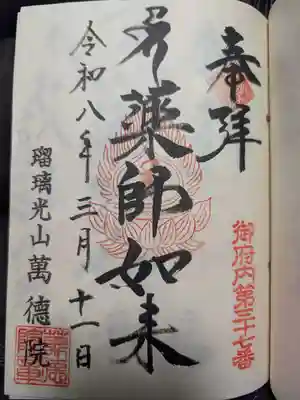 奉拝
御府内第三十七番
薬師如来
令和八年三月十一日
瑠璃光山萬徳院